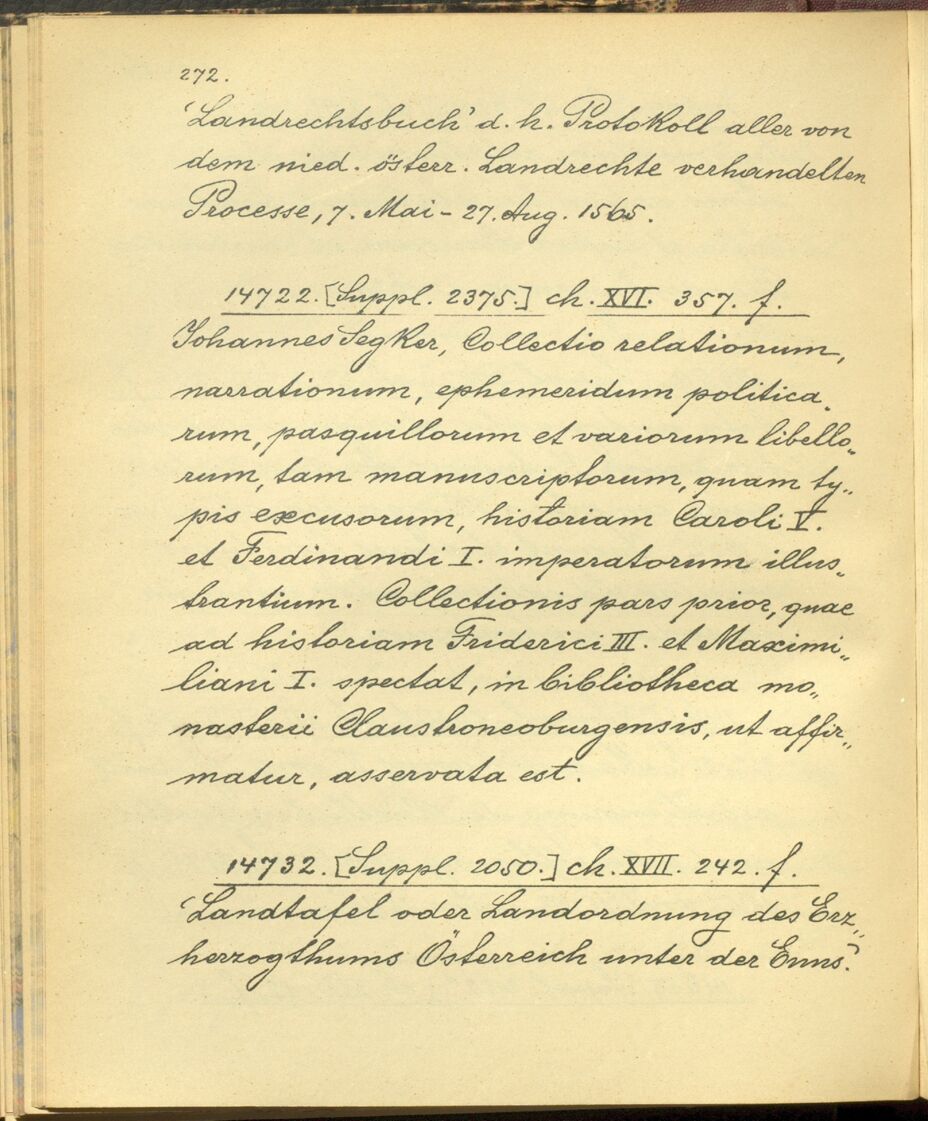 272.
'Landrechtsbuch' d. h. Protokoll aller von
dem nied. österr. Landrechte verhandelten
Processe, 7. Mai - 27. Aug. 1565.
14722. [Suppl. 2375.] ch. XVI. 357. f.
Johannes Segker, Collectio relationum,
narrationum, ephemeridum politica„
rum, pasquillorum et variorum libello„
rum, tam manuscriptorum, quam ty„
pis excusorum, historiam Caroli V.
et Ferdinandi I. imperatorum illus„
trantium. Collectionis pars prior, quae
ad historiam Friderici III. et Maximi„
liani I. spectat, in bibliotheca mo„
nasterii Claustroneoburgensis, ut affir„
matur, asservata est.
14732. [Suppl. 2050.] ch. XVII. 242. f.
'Landtafel oder Landordnung des Erz„
herzogthums Österreich unter der Enns.'